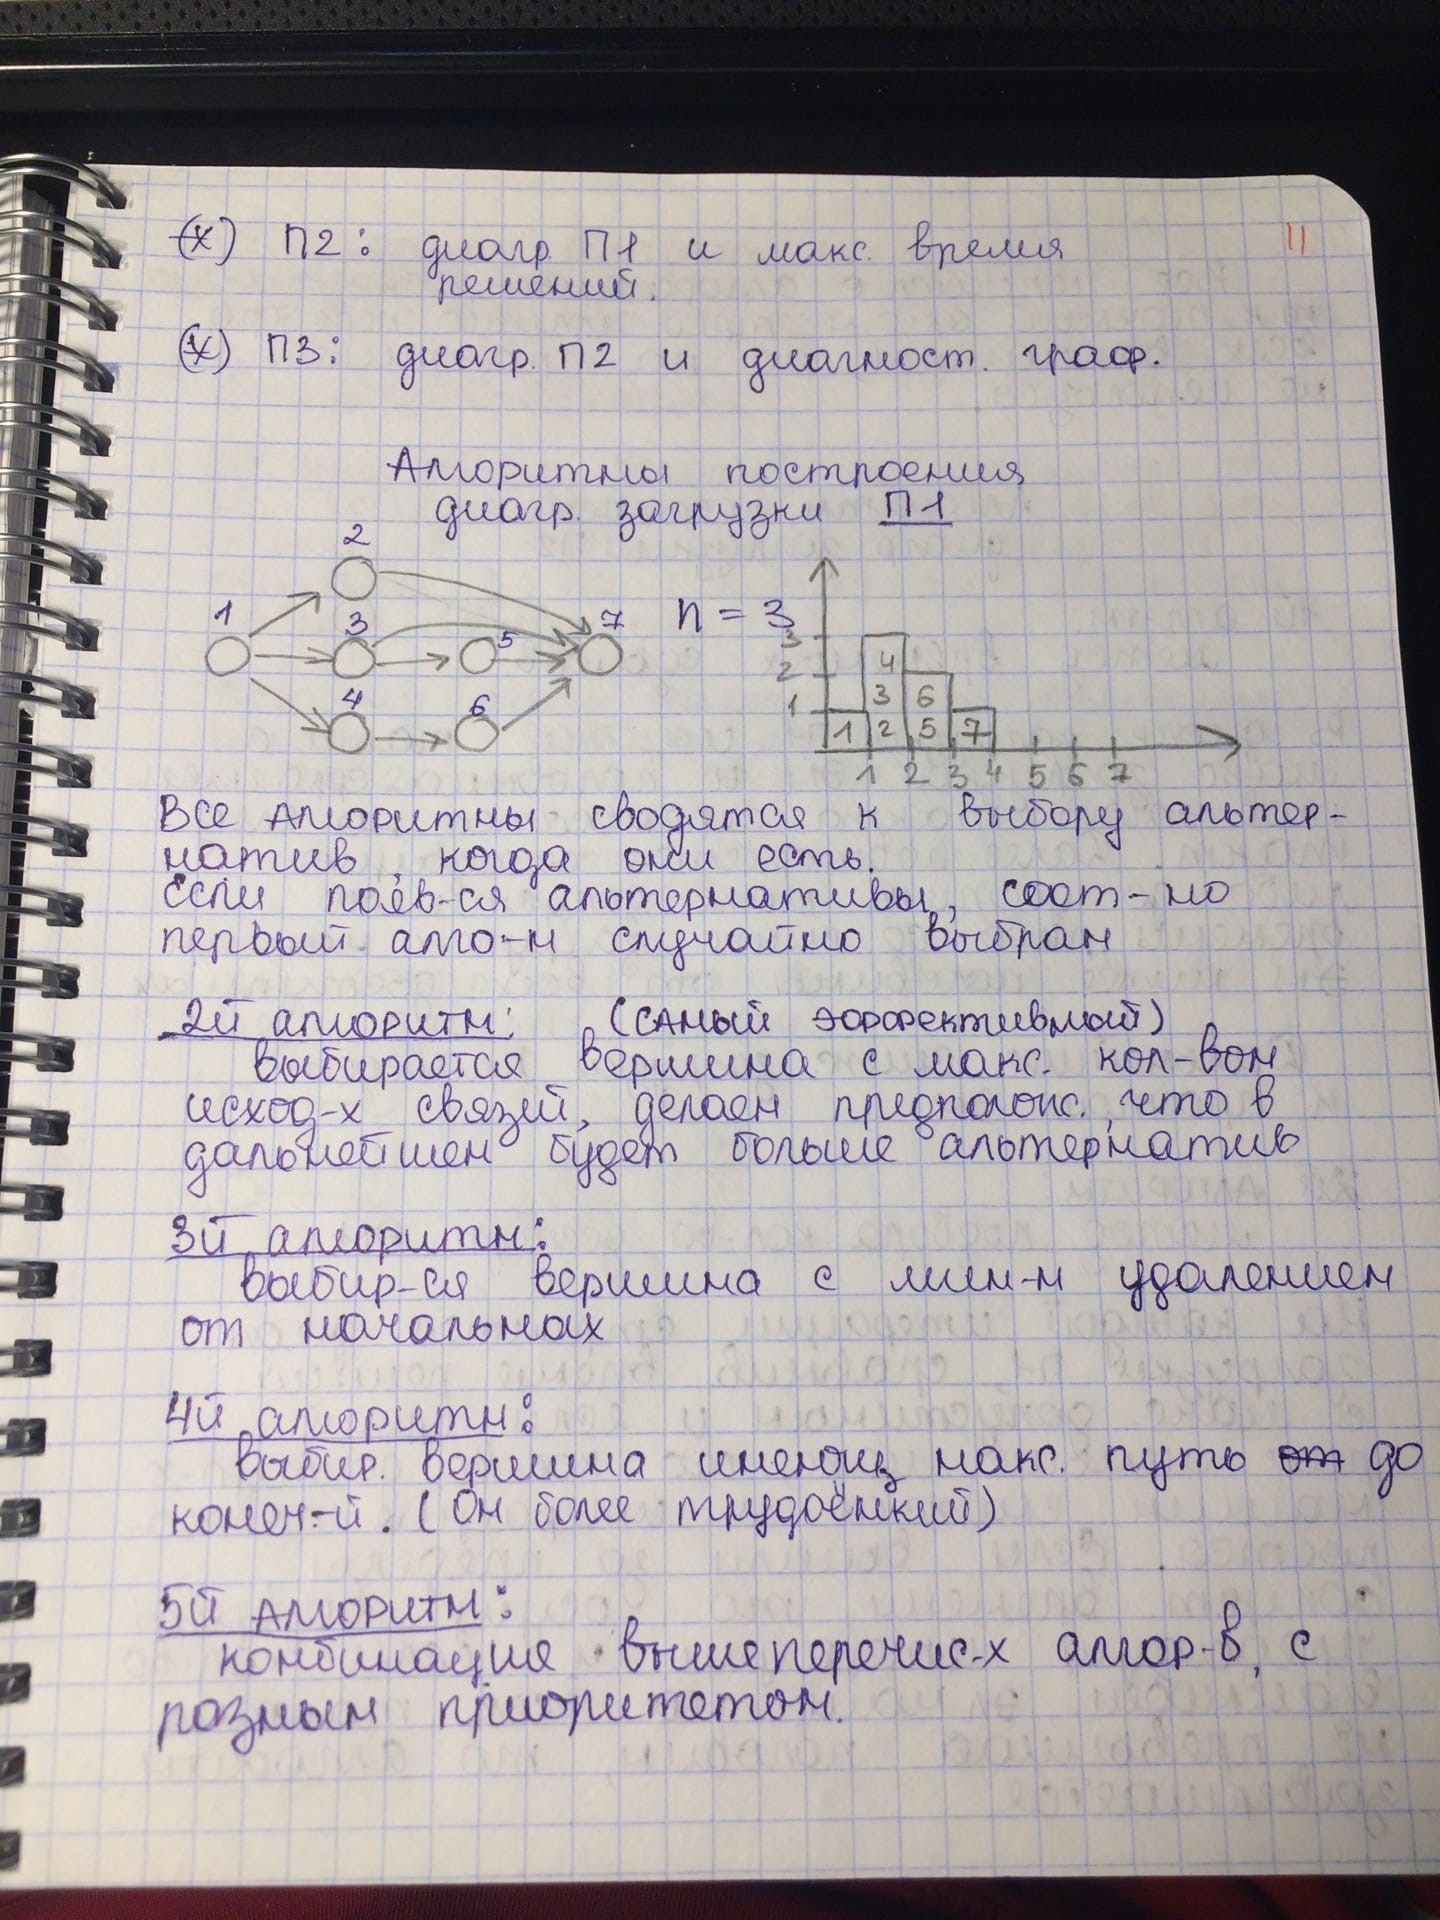 (х) П2: диагр. П1 и макс. время 11
решений.
(х) П3: диагр. П2 и диагност. граф.
Алгоритмы построения
диагр. загрузки П1
2
1 3 5 7 n = 3
4 6
3
2
1
4
3 6
1 2 5 7
1 2 3 4 5 6 7
Все алгоритмы сводятся к выбору альтер-
натив, когда они есть.
Если появ-ся альтернативы, соот-но
первый алго-м случайно выбран
2й алгоритм: (самый эффективный)
выбирается вершина с макс. кол-вом
исход-х связей, делаем предполож. что в
дальнейшем будет больше альтернатив
3й алгоритм:
выбир-ся вершина с мин-м удалением
от начальнах
4й алгоритм:
выбир. вершина имеющ макс. путь от до
конеч-й. (Он более трудоёмкий)
5й алгоритм:
комбинация вышеперечис-х алгор-в, с
разным приоритетом.